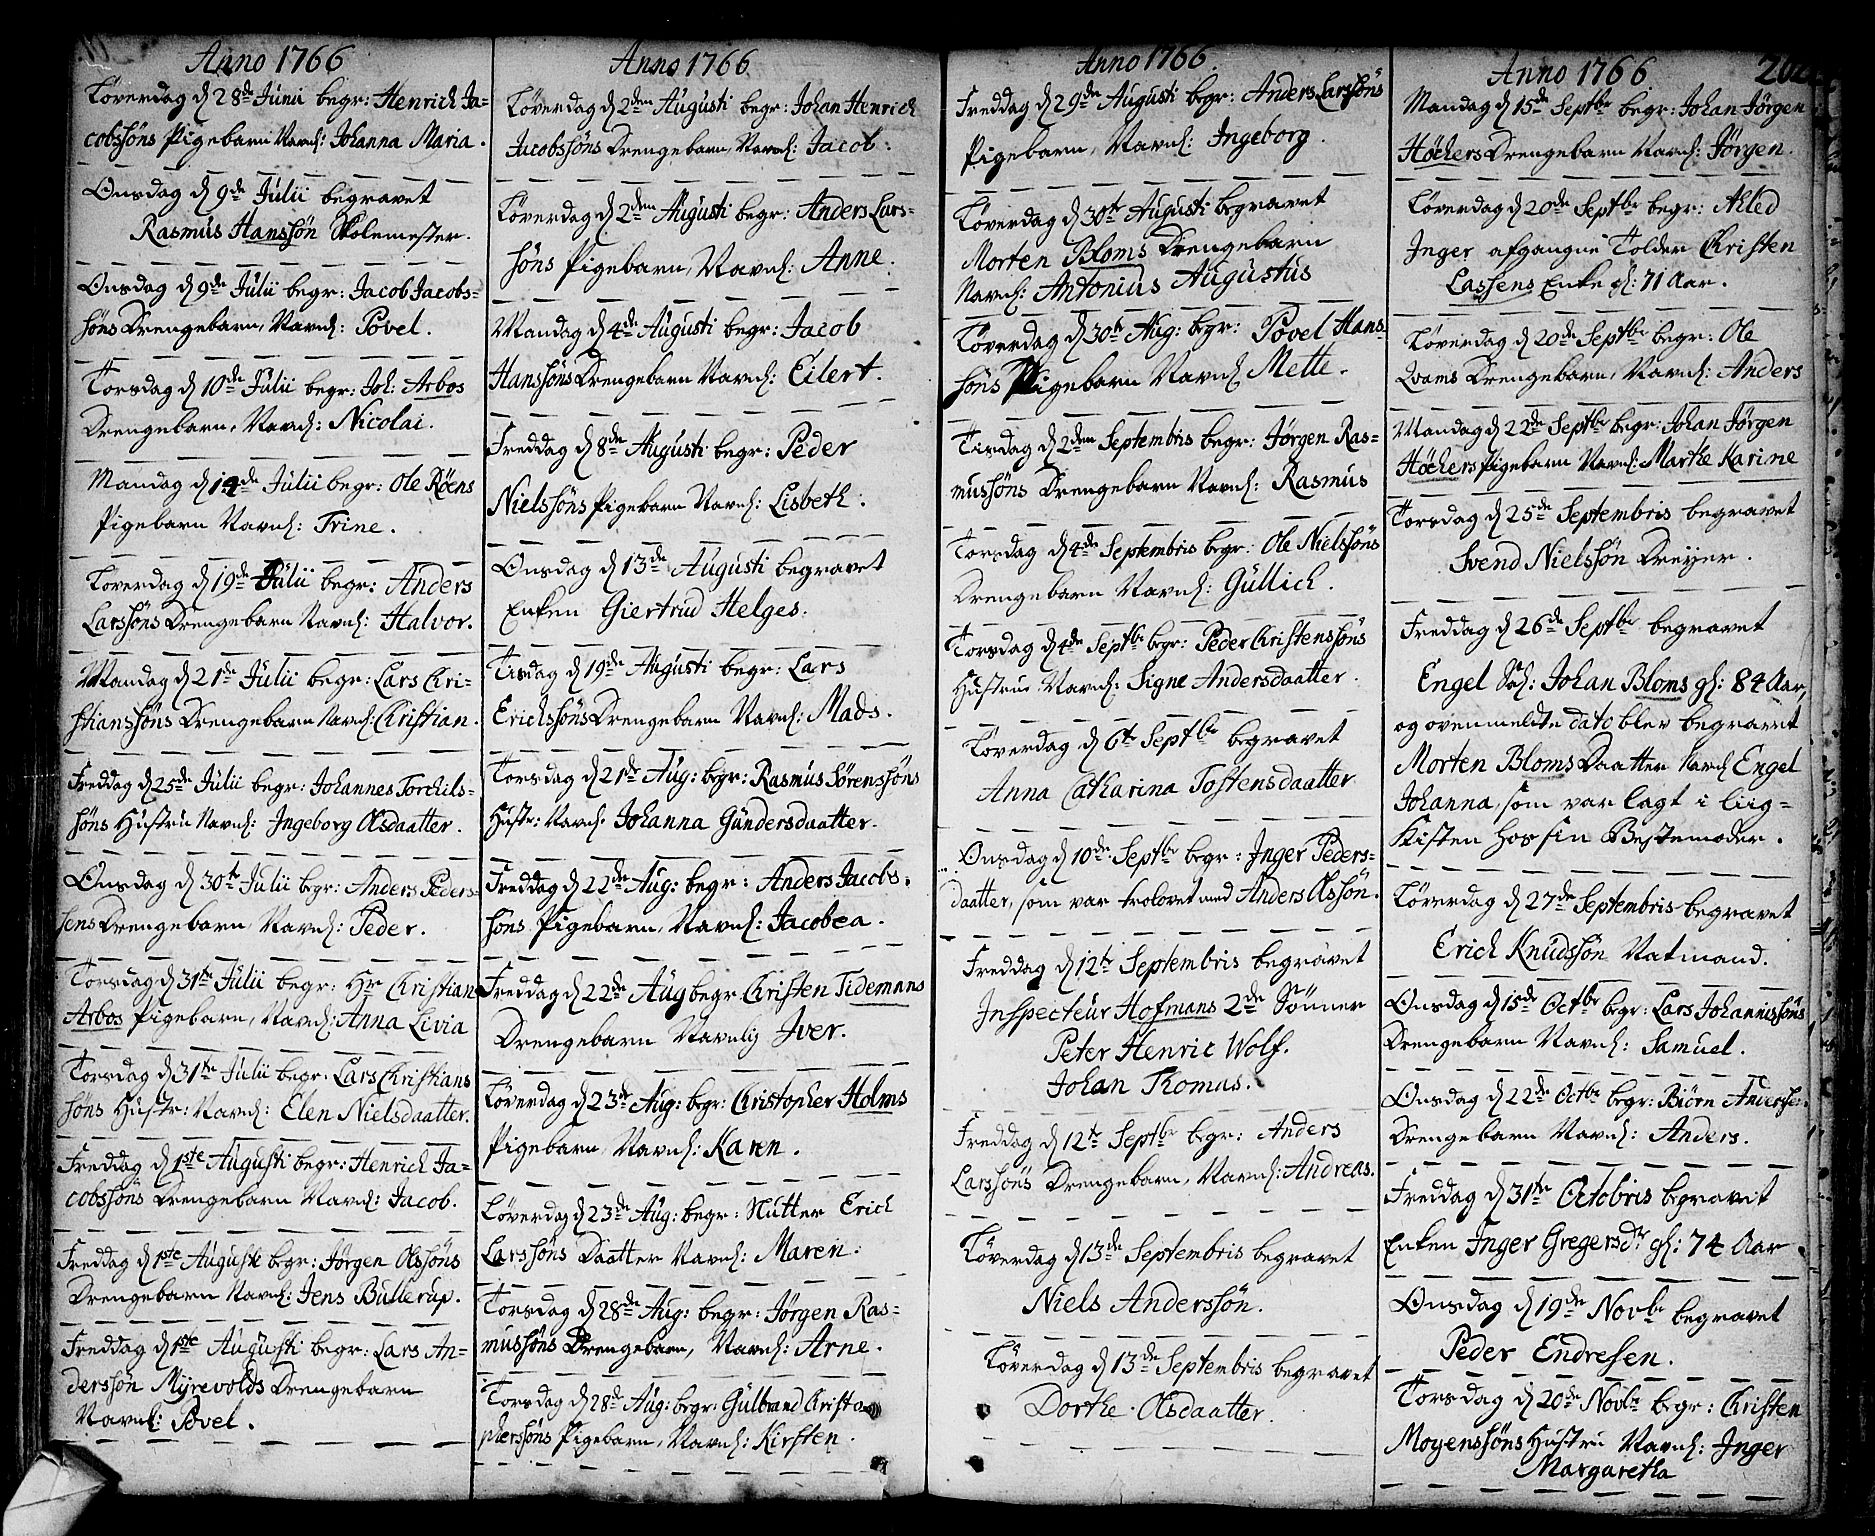 Anno 1766
Löverdag d 28de Junii begr: Henrich Ja=
cobssöns Pigebarn Navnl: Johanna Maria.
Onsdag d 9de Julii begravet
Rasmus Hanssön Skolemester.
Onsdag d 9de Julii begr: Jacob Jacobs=
söns Drengebarn, Navnl: Povel.
Torsdag d 10de Julii begr: Joh: Arbos
Drengebarn, Navnl: Nicolai.
Mandag d 14de Julii begr: Ole Röens
Pigebarn Navnl: Trine.
Löverdag d 19de Julii begr: Anders
Larssöns Drengebarn Navnl: Halvor.
Mandag d 21de Julii begr: Lars Chri=
stianssöns Drengebarn Navnl: Christian.
Freddag d 25de Julii begr: Johannes Torchils=
söns Hustru Navnl: Ingeborg Olsdaatter.
Onsdag d 30te Julii begr: Anders Peders=
sens Drengebarn, Navnl: Peder.
Torsdag d 31te Julii begr: Hr Christian
Arbos Pigebarn, Navnl: Anna Livia
Torsdag d 31te Julii begr: Lars Christians
söns Hustr: Navnl: Elen Nielsdaatter.
Freddag d 1ste Augusti begr: Henrich Ja=
cobssöns Drengebarn Navnl: Jacob.
Freddag d 1ste Augusti begr: Jörgen Olssöns
Drengebarn Navnl: Jens Bullerup.
Freddag d 1ste Augusti begr: Lars An=
derssön Myrevolds Drengebarn
Navnl: Povel.
Anno 1766
Löverdag d 2den Augusti begr: Johan Henrich
Jacobssöns Drengebarn, Navnl: Jacob:
Löverdag d 2den Augusti begr: Anders Lars=
söns Pigebarn, Navnl: Anne.
Mandag d 4de Augusti begr: Jacob
Hanssöns Drengebarn Navnl: Eilert.
Freddag d 8de Augusti begr: Peder
Nielssöns Pigebarn Navnl: Lisbeth.
Onsdag d 13de Augusti begravet
Enken Giertrud Helges.
Tisdag d 19de Augusti begr: Lars
Erichssöns Drengebarn Navnl: Mads.
Torsdag d 21de Aug: begr: Rasmus Sörenssöns
Hustr: Navnl. Johanna Gundersdaatter.
Freddag d 22de Aug: begr: Anders Jacobs=
söns Pigebarn, Navnl: Jacobea.
Freddag d 22de Aug begr Christen Tidemans
Drengebarn Navnlig Iver.
Löverdag d 23de Aug: begr: Christopher Holms
Pigebarn, Navnl: Karen.
Löverdag d 23de Aug: begr: Hutter Erich
Larssöns Daatter Navnl: Maren.
Torsdag d 28de Aug: begr: Jörgen Ras=
mussöns Drengebarn, Navnl: Arne.
Torsdag d 28de Aug: begr: Gulbrand Christo
pherssöns Pigebarn, Navnl: Kirsten.
Anno 1766.
Freddag d 29de Augusti begr: Anders Larssöns
Pigebarn, Navnl: Ingeborg.
Löverdag d 30te Augusti begravet
Morten Bloms Drengebarn
Navnl: Antonius Augustus
Löverdag d 30te Aug: begr: Povel Hans=
söns Pigebarn Navnl Mette.
Tisdag d 2den Septembris begr: Jörgen Ras=
mussöns Drengebarn Navnl: Rasmus
Torsdag d 4de Septembris begr: Ole Nielssöns
Drengebarn Navnl: Gullich.
Torsdag d 4de Septbr begr: Peder Christenssöns
Hustru Navnl: Signe Andersdaatter.
Löverdag d 6te Septbr begravet
Anna Catharina Tostensdaatter
Onsdag d 10de Septbr begr: Inger Peders=
daatter, som var trolovet med Anders Olssön.
Freddag d 12te Septembris begravet
Inspecteur Hofmans 2de Sönner
Peter Henric Wolf.
Johan Thomas.
Freddag d 12te Septbr begr: Anders
Larssöns Drengebarn, Navnl: Andreas.
Löverdag d 13de Septembris begravet
Niels Anderssön.
Löverdag d 13de Septembris begravet
Dorthe Olsdaatter.
Anno 1766
Mandag d 15de Septbr begr: Johan Jörgen
Höchers Drengebarn Navnl: Jörgen.
Löverdag d 20de Septbr begr: Afled
Inger afgangne Tolder Christen
Lassens Enke gl: 71 Aar.
Löverdag d 20de Septbr begr: Ole
Qvams Drengebarn, Navnl: Anders
Mandag d 22de Septbr begr: Johan Jörgen
Höchers Pigebarn Navnl: Marthe Karine
Torsdag d 25de Septembris begravet
Svend Nielssön Dreyer.
Freddag d 26de Septbr begravet
Engel Sal: Johan Bloms gl: 84 Aar,
og ovenmeldte dato blev begravet
Morten Bloms Daatter Navnl Engel
Johanna, som var lagt i Liig=
Kisten hos sin Bestemoder.
Löverdag d 27de Septembris begravet
Erich Knudssön Vatmand.
Onsdag d 15de Octbr begr: Lars Johannissöns
Drengebarn Navnl: Samuel.
Onsdag d 22de Octbr begr: Biörn Andersse
Drengebarn Navnl: Anders.
Freddag d 31te Octobris begravet
Enken Inger Gregersdr gl: 74 Aar
Onsdag d 19de Novbr begravet
Peder Endresen.
Torsdag d 20de Novbr begr: Christen
Moyenssöns Hustru Navnl: Inger
Margaretha